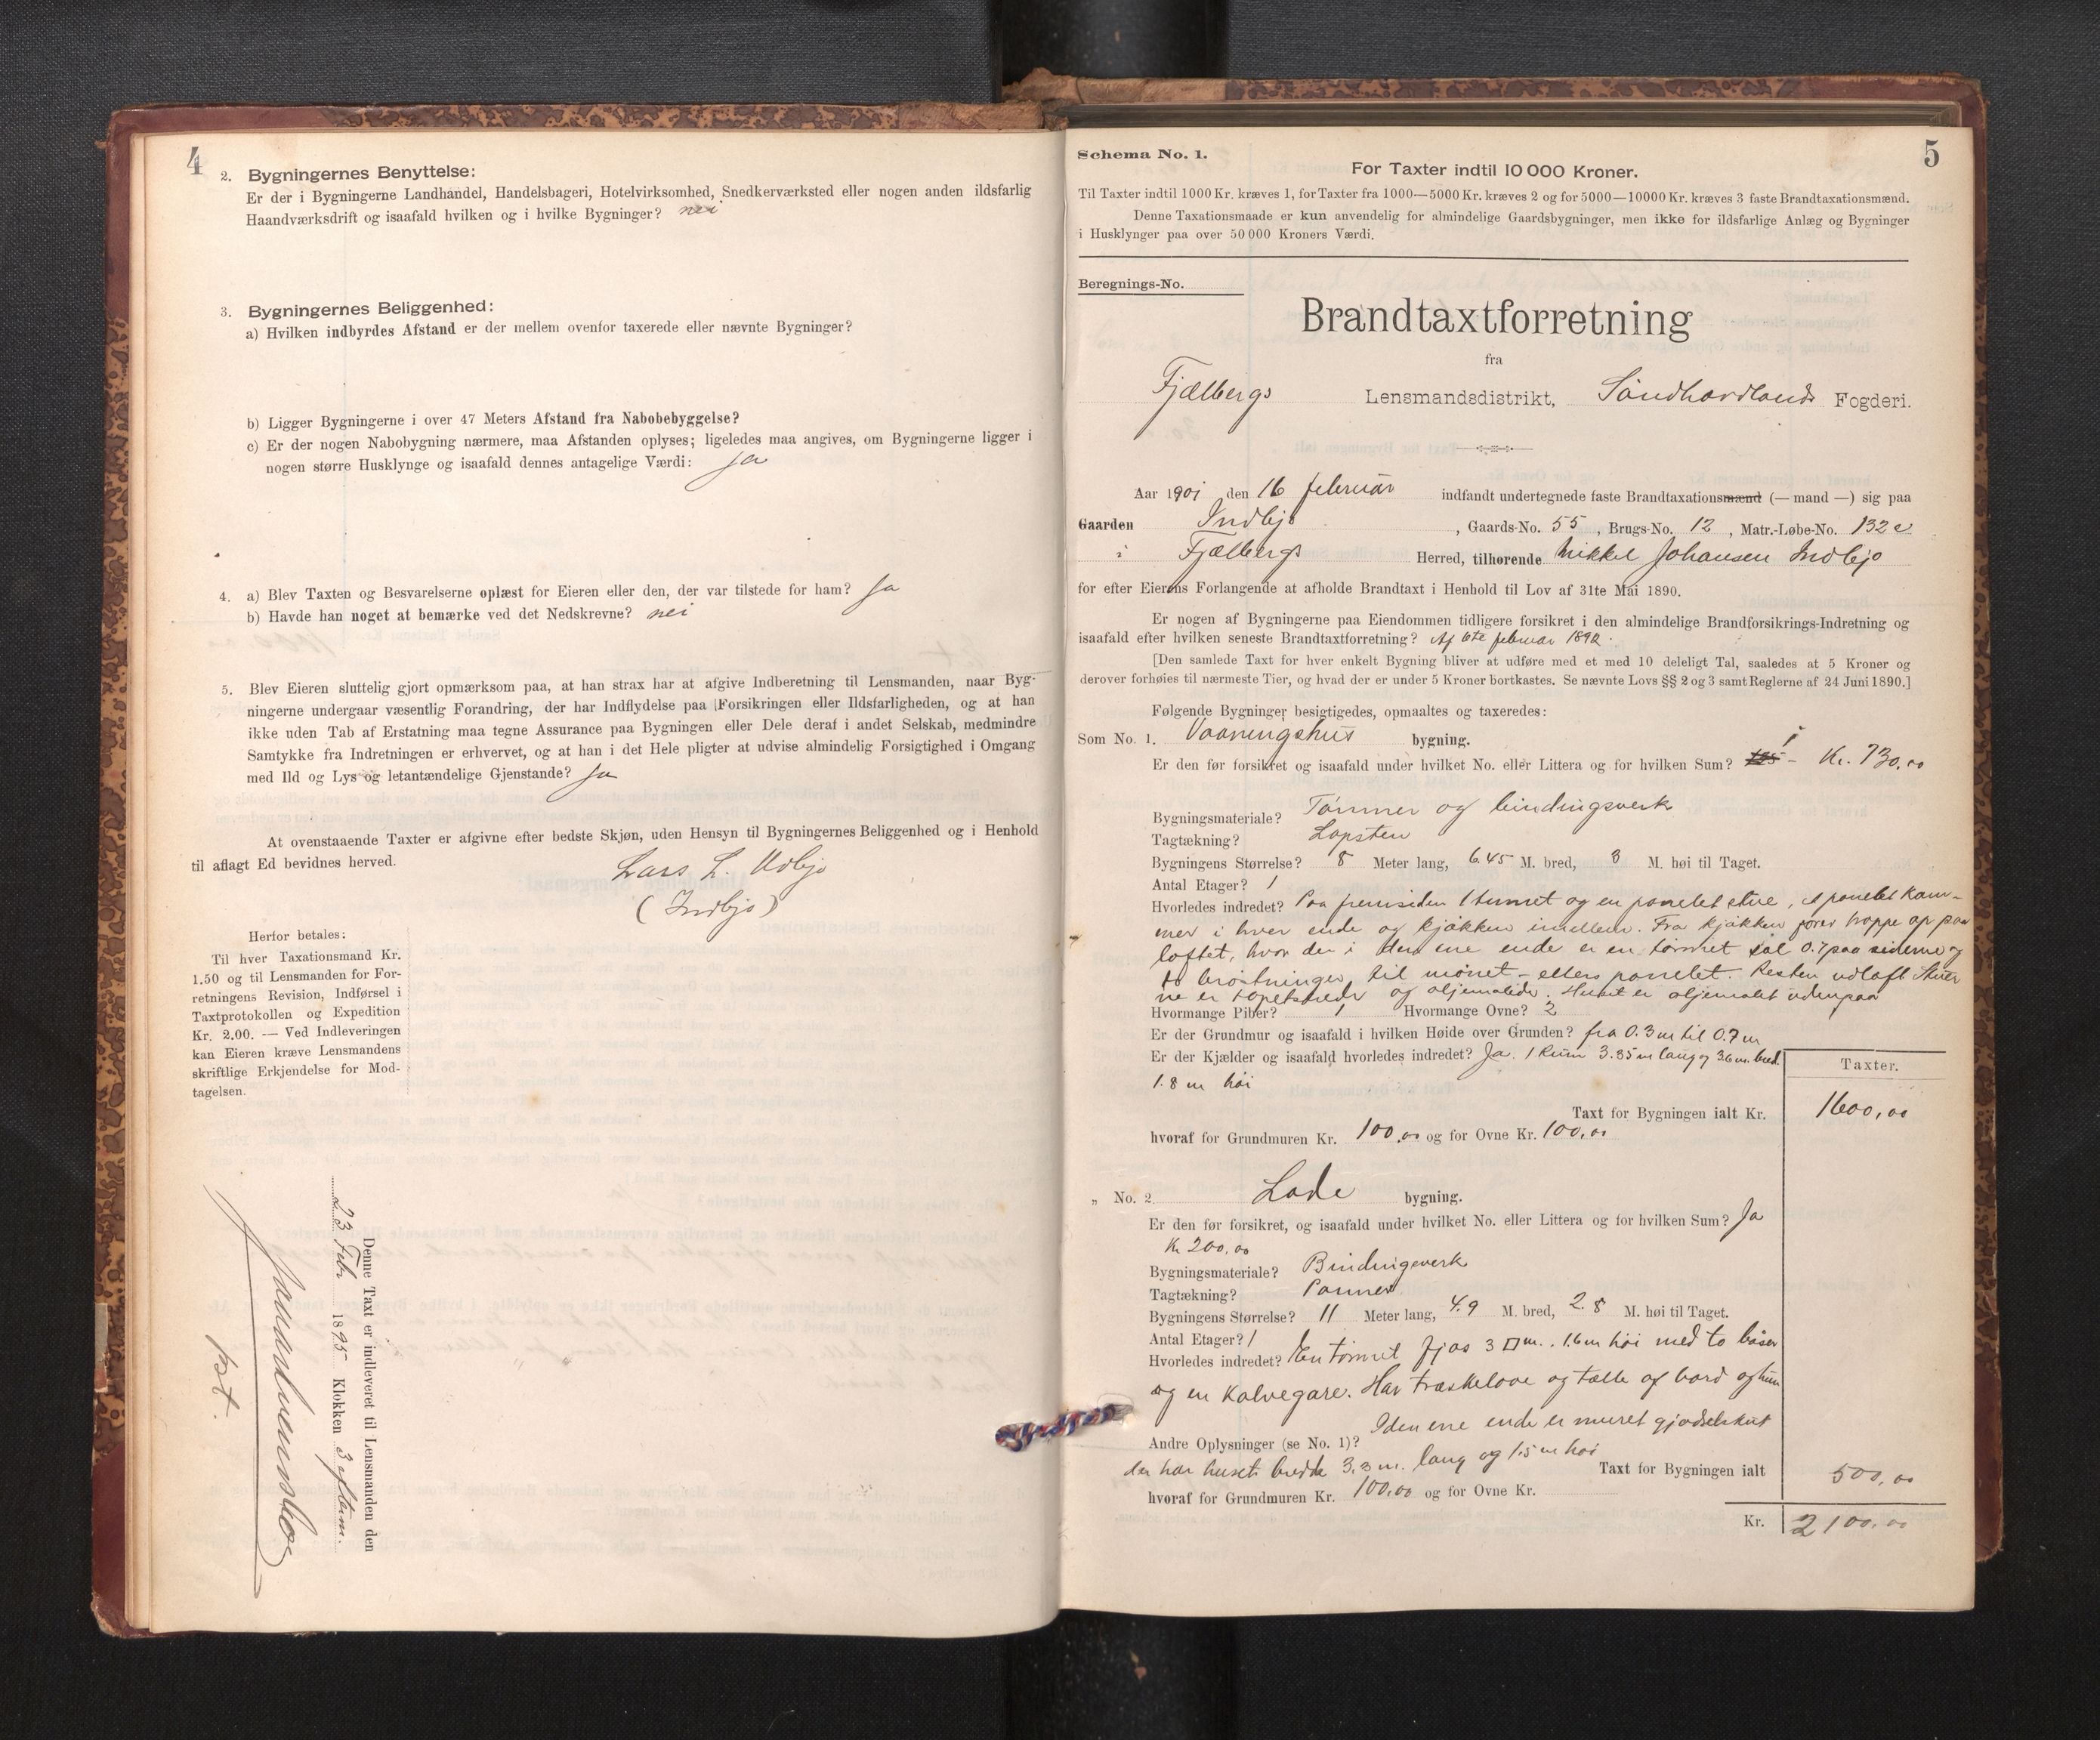 4
2. Bygningernes Benyttelse:
Er der i Bygningerne Landhandel, Handelsbageri, Hotelvirksomhed, Snedkerværksted eller nogen anden ildsfarlig
Haandværksdrift og isaafald hvilken og i hvilke Bygninger? nei
3. Bygningernes Beliggenhed:
a) Hvilken indbyrdes Afstand er der mellem ovenfor taxerede eller nævnte Bygninger?
b) Ligger Bygningerne i over 47 Meters Afstand fra Nabobebyggelse?
c) Er der nogen Nabobygning nærmere, maa Afstanden oplyses; ligeledes maa angives, om Bygningerne ligger i
nogen større Husklynge og isaafald dennes antagelige Værdi: ja
4. a) Blev Taxten og Besvarelserne oplæst for Eieren eller den, der var tilstede for ham? Ja
b) Havde han noget at bemærke ved det Nedskrevne? nei
5. Blev Eieren sluttelig gjort opmærksom paa, at han strax har at afgive Indberetning til Lensmanden, naar Byg-
ningerne undergaar væsentlig Forandring, der har Indflydelse paa Forsikringen eller Ildsfarligheden, og at han
ikke uden Tab af Erstatning maa tegne Assurance paa Bygningen eller Dele deraf i andet Selskab, medmindre
Samtykke fra Indretningen er erhvervet, og at han i det Hele pligter at udvise almindelig Forsigtighed i Omgang
med Ild og Lys og letantændelige Gjenstande? Ja
At ovenstaaende Taxter er afgivne efter bedste Skjøn, uden Hensyn til Bygningernes Beliggenhed og i Henhold
til aflagt Ed bevidnes herved.
Lars L. Udbjo
(Indbjo)
Herfor betales:
Til hver Taxationsmand Kr.
1.50 og til Lensmanden for For-
retningens Revision, Indførsel i
Taxtprotokollen og Expedition
Kr. 2.00. — Ved Indleveringen
kan Eieren kræve Lensmandens
skriftlige Erkjendelse for Mod-
tagelsen.
Denne Taxt er indleveret til Lensmanden den
23 Febr 1895 Klokken 3 efterm.
5
Schema No. 1.
For Taxter indtil 10 000 Kroner.
Til Taxter indtil 1000 Kr. kræves 1, for Taxter fra 1000—5000 Kr. kræves 2 og for 5000—10000 Kr. kræves 3 faste Brandtaxationsmænd.
Denne Taxationsmaade er kun anvendelig for almindelige Gaardsbygninger, men ikke for ildsfarlige Anlæg og Bygninger
i Husklynger paa over 50 000 Kroners Værdi.
Beregnings-No.
Brandtaxtforretning
fra
Fjælbergs Lensmandsdistrikt, Søndhordlands Fogderi.
Aar 1901 den 16 februar indfandt undertegnede faste Brandtaxationsmænd (— mand —) sig paa
Gaarden Indbjo, Gaards-No. 55, Brugs-No. 12, Matr.-Løbe-No. 132 c
i Fjælbergs Herred, tilhørende Mikkel Johansen Indbjo
for efter Eierens Forlangende at afholde Brandtaxt i Henhold til Lov af 31te Mai 1890.
Er nogen af Bygningerne paa Eiendommen tidligere forsikret i den almindelige Brandforsikrings-Indretning og
isaafald efter hvilken seneste Brandtaxtforretning? Af 6te februar 1892.
[Den samlede Taxt for hver enkelt Bygning bliver at udføre med et med 10 deleligt Tal, saaledes at 5 Kroner og
derover forhøies til nærmeste Tier, og hvad der er under 5 Kroner bortkastes. Se nævnte Lovs §§ 2 og 3 samt Reglerne af 24 Juni 1890.]
Følgende Bygninger besigtigedes, opmaaltes og taxeredes:
Som No. 1. Vaaningshus bygning.
Er den før forsikret og isaafald under hvilket No. eller Littera og for hvilken Sum? 1 – Kr. 730,00
Bygningsmateriale? Tømmer og bindingsverk
Tagtækning? Lapsten
Bygningens Størrelse? 8 Meter lang, 6.45 M. bred, 3 M. høi til Taget.
Antal Etager? 1
Hvorledes indredet? Paa fremsiden 1 tømret og en panelet stue, et panelet kam-
mer i hver ende og kjøkken imellem. Fra kjøkken fører trappe op paa
loftet, hvor der i den ene ende er en tømret sal 0.7 paa siderne og
to brøstninger til mønet – ellers panelet. Resten udloft. Stuer
ne er tapetserede og oljemalede. Huset er oljemalet udenpaa
Hvormange Piber? 1 Hvormange Ovne? 2
Er der Grundmur og isaafald i hvilken Høide over Grunden? fra 0.3 m til 0.7 m
Er der Kjælder og isaafald hvorledes indredet? Ja. 1 Rum 3.35 m lang og 3.6 m. bred.
1.8 m høi
Taxter.
Taxt for Bygningen ialt Kr. 1600,00
hvoraf for Grundmuren Kr. 100,00 og for Ovne Kr. 100,00
„ No. 2 Lade bygning.
Er den før forsikret, og isaafald under hvilket No. eller Littera og for hvilken Sum? Ja
Kr 200,00
Bygningsmateriale? Bindingverk
Tagtækning? Panner
Bygningens Størrelse? 11 Meter lang, 4.9 M. bred, 2.8 M. høi til Taget.
Antal Etager? 1
Hvorledes indredet? En tømret fjøs 3 □ m. 1.6 m høi med to båser
og en kalvegare. Har træskelove og tælle af bord og hun
Andre Oplysninger (se No. 1)? I den ene ende er muret gjødselskut
der har husets bredde 3,3 m. lang og 1.5 m høi
Taxt for Bygningen ialt 500,00
hvoraf for Grundmuren Kr. 100,00 og for Ovne Kr.
Kr. 2100,00